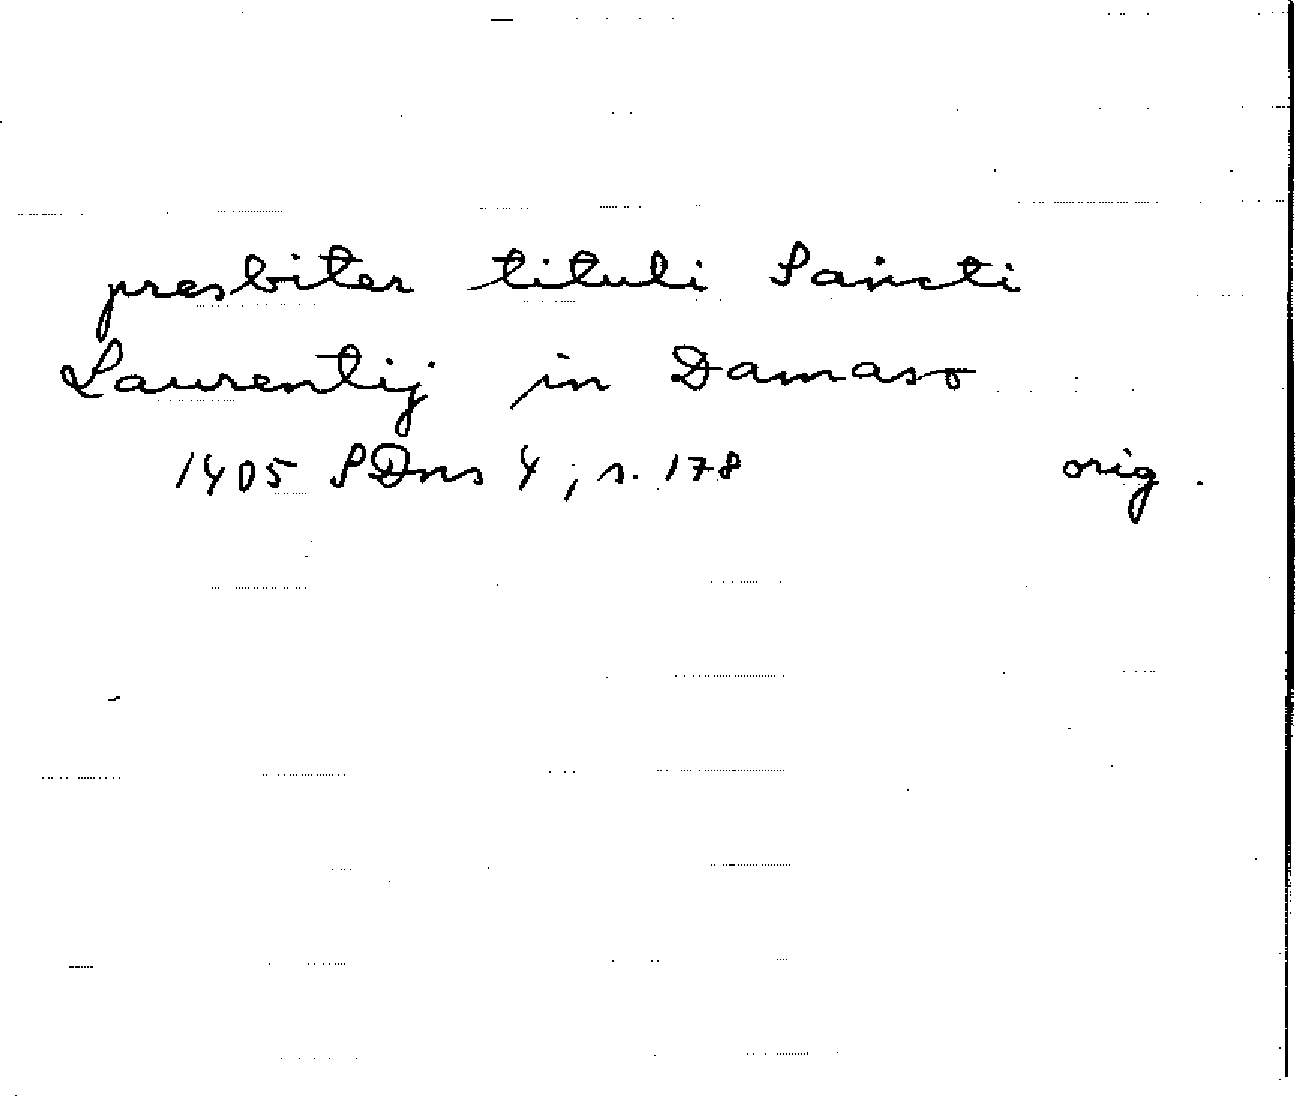 presbiter tituli Sancti
Laurentij in Damaso
1405 SDns 4, s. 178 orig.